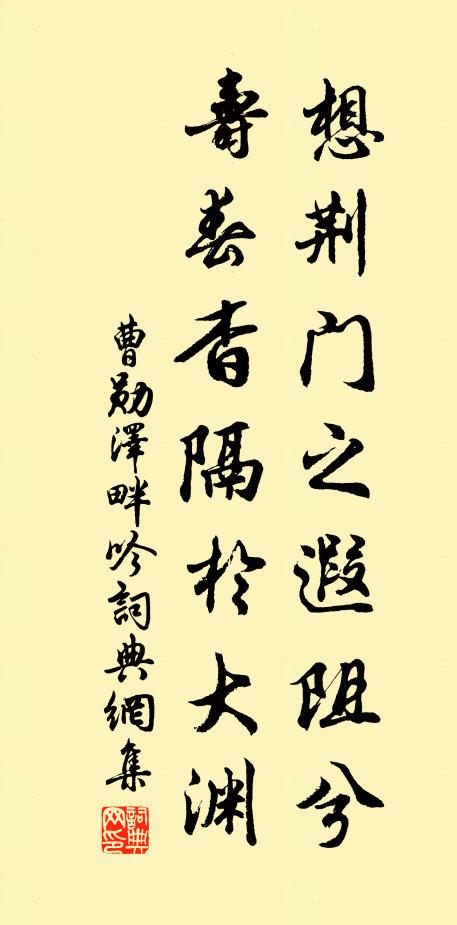 想荆门之遐阻兮
壽春杳隔於大渊
曹勋澤畔吟詞典網集
詞典网印